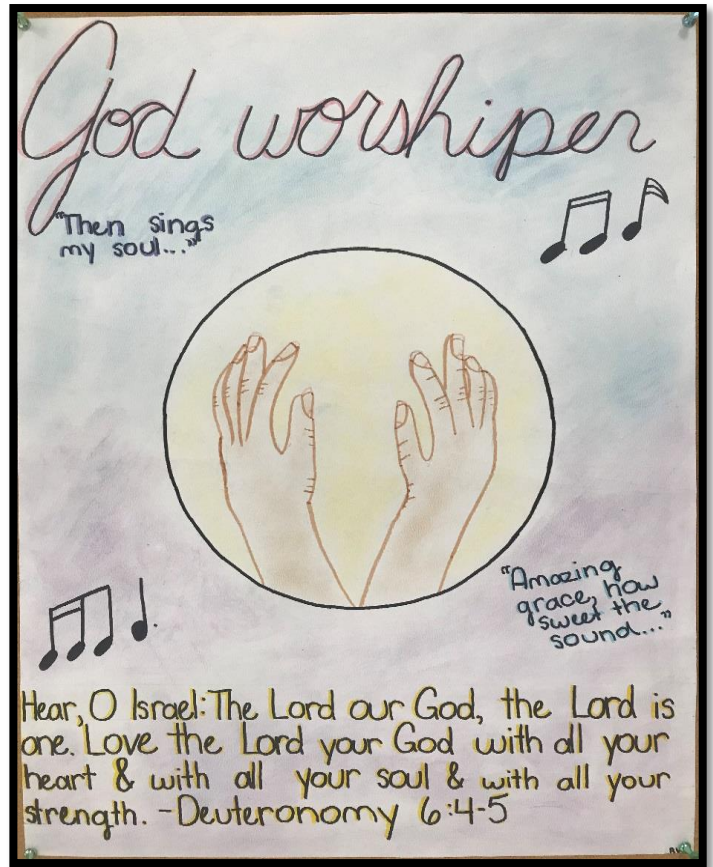 God worshiper
"Then sings
my soul..."
"Amazing
grace, how
sweet the
sound..."
Hear, O Israel: The Lord our God, the Lord is
one. Love the Lord your God with all your
heart & with all your soul & with all your
strength. -Deuteronomy 6:4-5